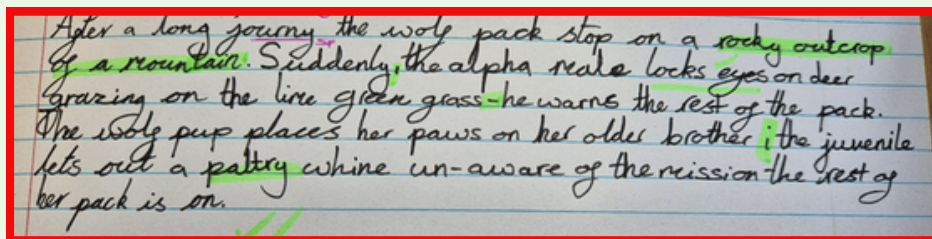 After a long journy the wolf pack stop on a rocky outcrop
of a mountain. Suddenly, the alpha male locks eyes on deer
grazing on the lime green grass - he warns the rest of the pack.
The wolf pup places her paws on her older brother ; the juvenile
lets out a paltry whine un-aware of the mission the rest of
her pack is on.